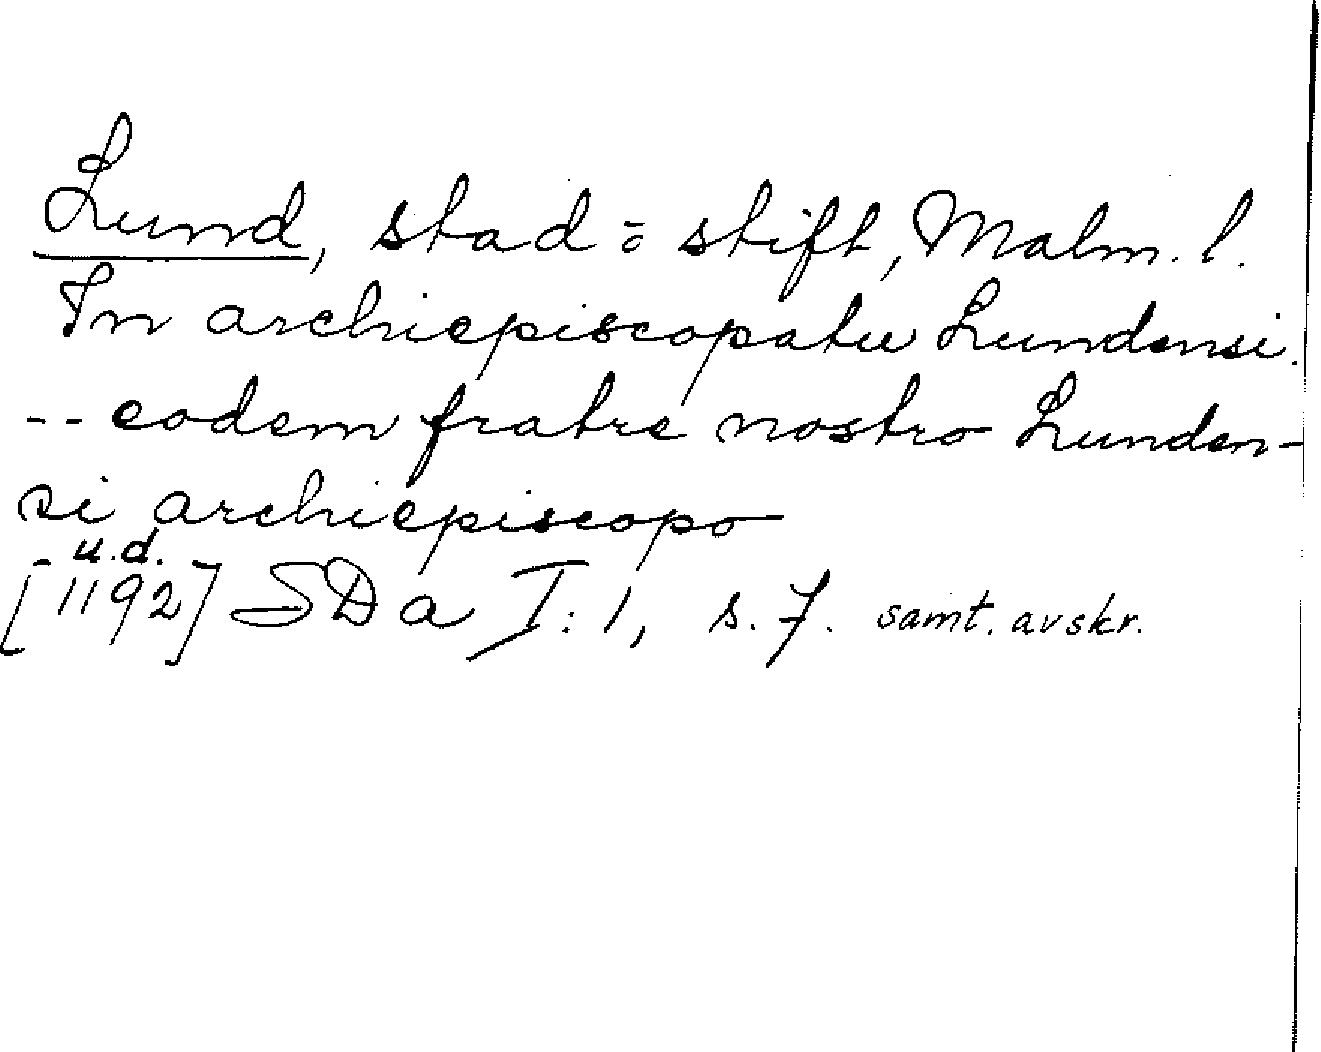 Lund, stad o stift, Malm. l.
In archiepiscopatu Lundensi.
-- eodem fratre nostro Lunden-
si archiepiscopo
u.d.
[1192] SDa I:1, s. 7. samt. avskr.